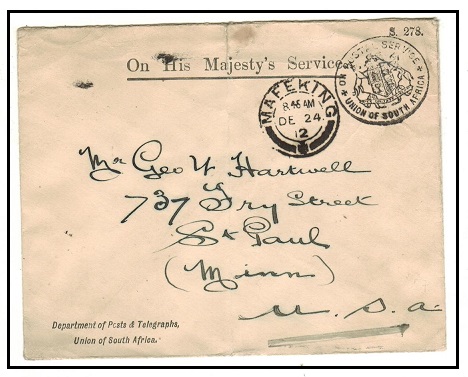 S. 278.
On His Majesty's Service.
ON POSTAL SERVICE
UNION OF SOUTH AFRICA
MAFEKING
8.45 AM
DE 24
12
Mr Geo W Hartwell
737 Fry Street
St Paul
(Minn)
U. S. a.
Department of Posts & Telegraphs,
Union of South Africa.